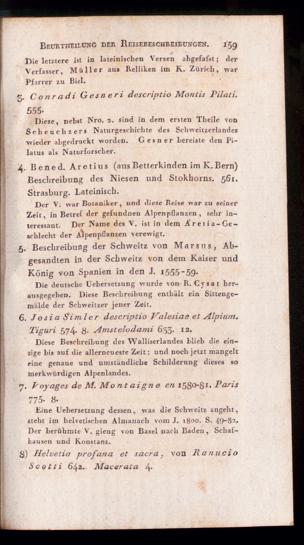 BEURTHEILUNG DER REISEBESCHREIBUNGEN. 159
Die letztere ist in lateinischen Versen abgefaſst; der
Verfasser, Müller aus Relliken im K. Zürich, war
Pfarrer zu Biel.
3. Conradi Gesneri descriptio Montis Pilati.
555.
Diese, nebst Nro. 2. sind in dem ersten Theile von
Scheuchzers Naturgeschichte des Schweitzerlandes
wieder abgedruckt worden. Gesner bereiste den Pi-
latus als Naturforscher.
4. Bened. Aretius (aus Betterkinden im K. Bern)
Beschreibung des Niesen und Stokhorns. 561.
Strasburg. Lateinisch.
Der V. war Botaniker, und diese Reise war zu seiner
Zeit, in Betref der gefundnen Alpenpflanzen, sehr in-
teressant. Der Name des V. ist in dem Aretia-Ge-
schlecht der Alpenpflanzen verewigt.
5. Beschreibung der Schweitz von Marsus, Ab-
gesandten in der Schweitz von dem Kaiser und
König von Spanien in den J. 1555-59.
Die deutsche Uebersetzung wurde von R. Cysat her-
ausgegeben. Diese Beschreibung enthält ein Sittenge-
mälde der Schweitzer jener Zeit.
6. Josia Simler descriptio Valesiae et Alpium.
Tiguri 574. 8. Amstelodami 633. 12.
Diese Beschreibung des Walliserlandes blieb die ein-
zige bis auf die allerneueste Zeit; und noch jetzt mangelt
eine genaue und umständliche Schilderung dieses so
merkwürdigen Alpenlandes.
7. Voyages de M. Montaigne en 1580-81. Paris
775. 8.
Eine Uebersetzung dessen, was die Schweitz angeht,
steht im helvetischen Almanach vom J. 1800. S. 49-82.
Der berühmte V. gieng von Basel nach Baden, Schaf-
hausen und Konstanz.
8) Helvetia profana et sacra, von Ranucio
Scotti 642. Macerata 4.